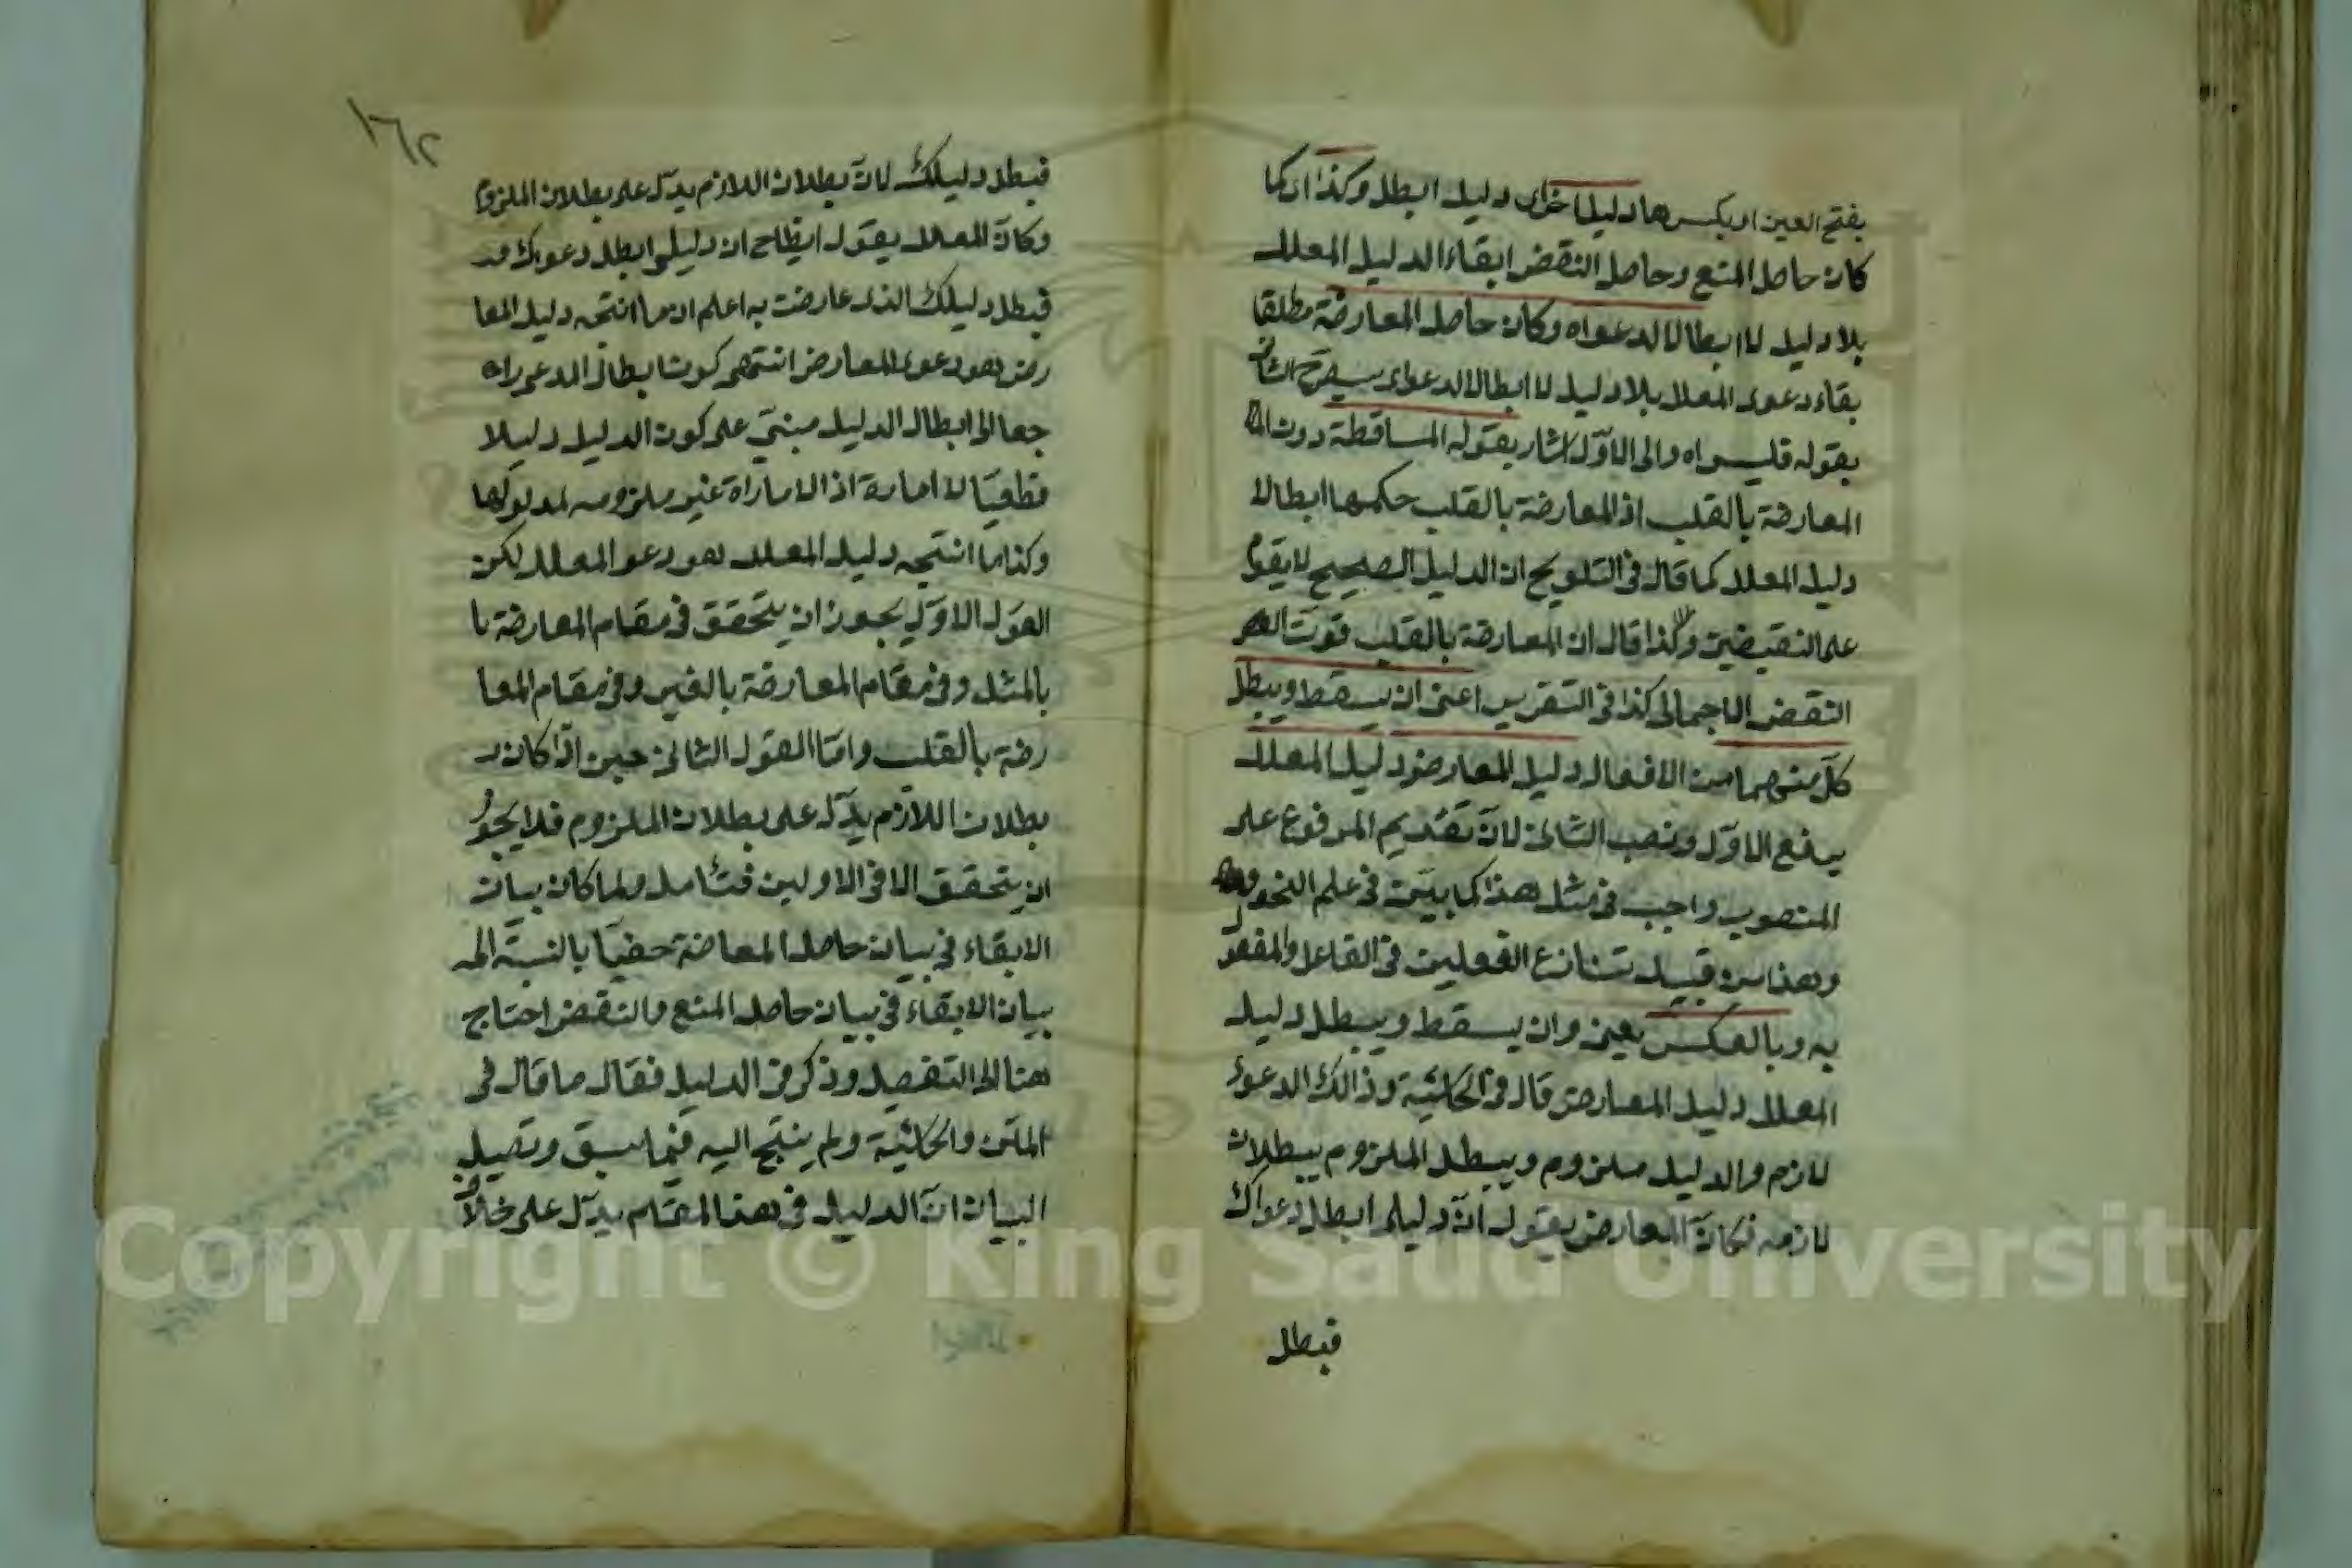 بفتح العين او بكسرها دليلا اخراى دليله ابطل وكذا اى كما
كان حاصل المنع وحاصل النقض ابقاء الدليل المعلل
بلا دليل لا ابطالا لدعواه وكان حاصل المعارضة مطلقا
بقاء دعوى المعلل بلا دليل لا ابطالا لدعواى سيصرح الثانى
بقوله فليس اه والى الاول اشار بقوله المساقطة دون
المعارضة بالقلب اذ المعارضة بالقلب حكمها ابطالا
دليل المعلل كما قال فى التلويح ان الدليل الصحيح لا يقوم
على النقيضين وكذا قال ان المعارضة بالقلب قويت
النقض الاجمالى كذا فى التقرير اعنى ان يسقط ويبطل
كل منهما من الافعال دليل المعارض دليل المعلل
برفع الاول ونصب الثانى لان تقديم المرفوع على
المنصوب واجب فى مثل هذا كما بين فى علم النحو
وهذا من قبيل تنازع الفعلين فى الفاعل والمفعول
به وبالعكس يعنى وان يسقط ويبطل دليل
المعلل دليل المعارض قال فى الحاشية وذالك الدعوى
لازم والدليل ملزوم ويبطل الملزوم ببطلان
لازمه فكان المعارض يقول ان دليلى ابطل دعواك
فبطل
١٦٢
فبطل دليلك لان بطلان اللازم يدل على بطلان الملزوم
وكان المعلل يقول ايضا ان دليلى ابطل دعوىك
فبطل دليلك الذى عارضت به اعلم ان ما انتجه دليل المعا
رض هو دعوى المعارض انتهى كون ابطال المدعى را
جعا الى ابطال الدليل مبنى على كون الدليل دليلا
قطعيا لا امارة اذ الاماراة غير ملزومه لمدلولها
وكذا ما انتجه دليل المعلل هو دعو المعلل لكن
القول الاول يجوز ان يتحقق فى مقام المعارضة با
بالمثل وفى مقام المعارضة بالغير وفى مقام المعا
رضة بالقلب واما القول الثانى حين اذا كان
بطلان اللازم يدل على بطلان الملزوم فلا يجوز
ان يتحقق الا فى الاولين فتأمل ولما كان بيان
الابقاء فى بيان حاصل المعاضة خفيا بالنسبة الى
بيان الابقاء فى بيان حاصل المنع والنقض احتاج
هنا الى التفصيل وذكر فى الدليل فقال ما قال فى
المتن والحاشية ولم ينتج اليه فيما سبق وتفصيل
البيان ان الدليل فى هذا المقام يدل على خلاف
Copyright © King Saud University